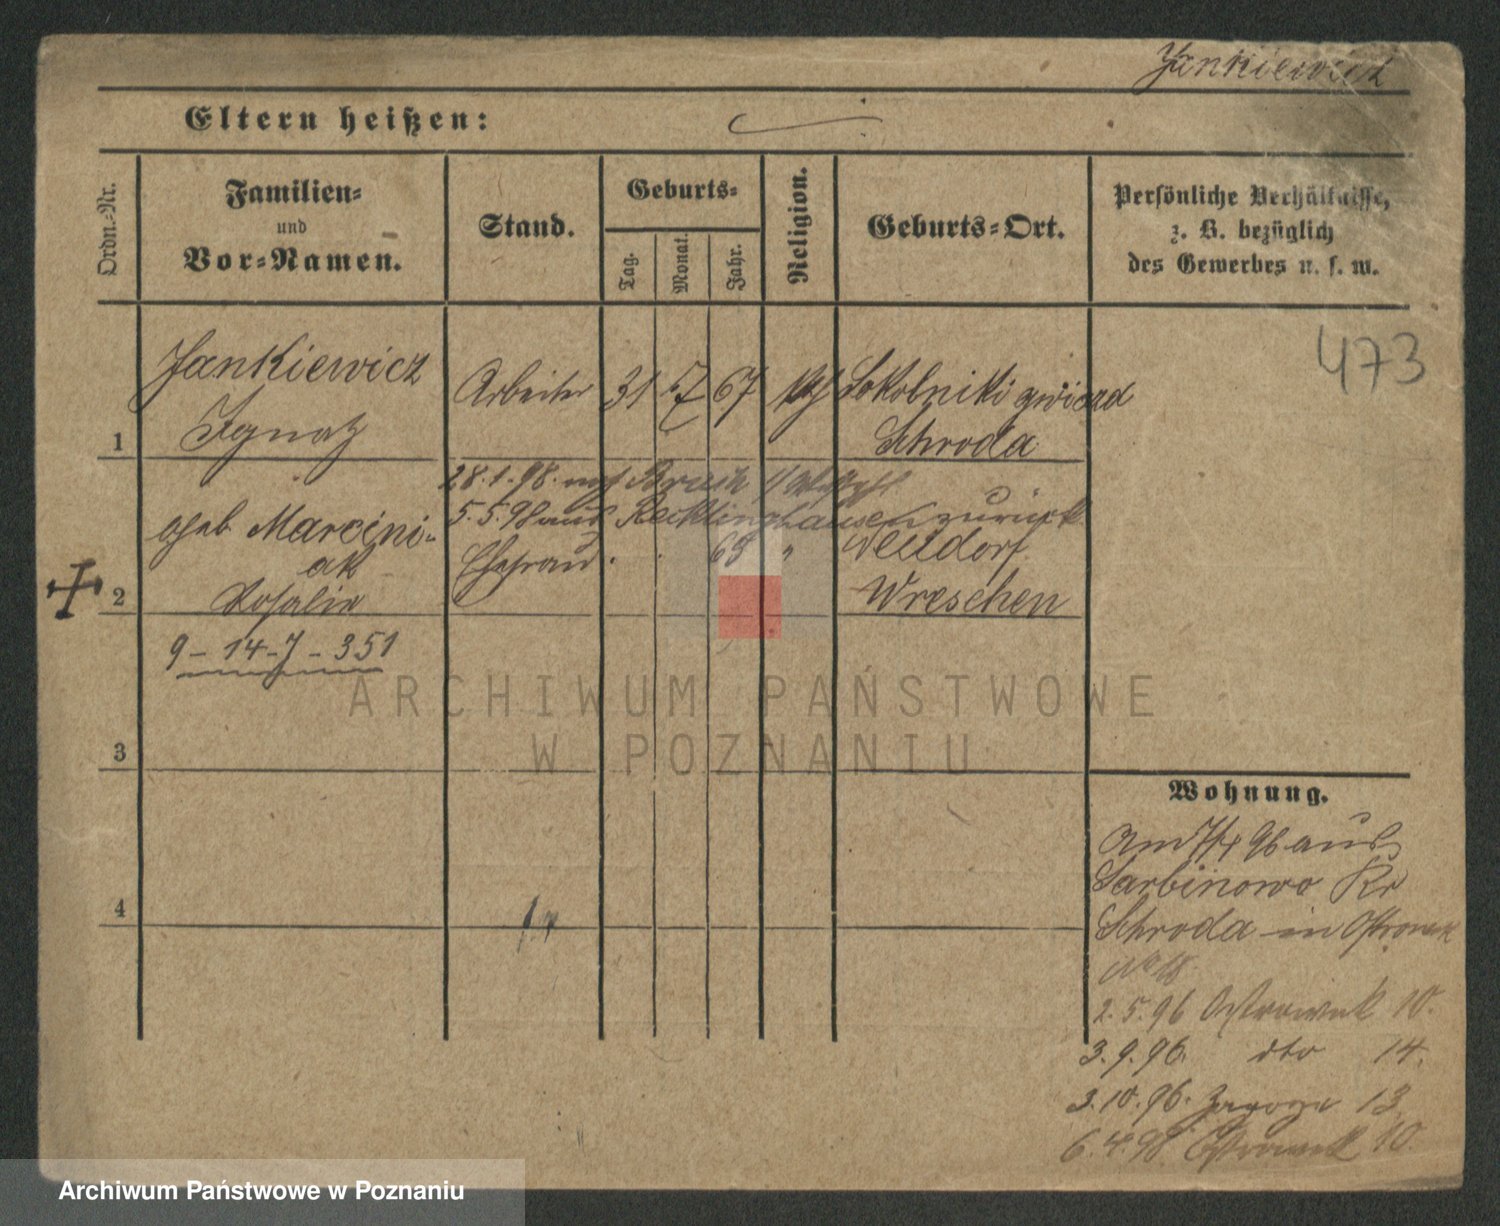 Jankiewicz
Eltern heißen:
Ordn.-Nr.
Familien-
und
Vor-Namen.
Stand.
Geburts-
Tag.
Monat.
Jahr.
Religion.
Geburts-Ort.
Persönliche Verhältnisse,
z. B. bezüglich
des Gewerbes u. s. w.
473
Jankiewicz
Ignatz
Arbeiter 31 7 67 kth Sokolniki
Schroda
1
28.1.98. nach Bruch
5.5.98 aus Recklinghausen zurück
geb Marcini-
ak
Rosalie
Ehefrau 69 " Neudorf
Wreschen
2
9-14-7-351
ARCHIWUM PAŃSTWOWE
W POZNANIU
3
4
Wohnung.
Am 7/4 96 aus
Sarbinowo Kr
Schroda in Ostrowek
2.5.96 Ostrowek 10.
3.9.96. dto 14.
3.10.96. Zagorze 13
6.4.98 Ostrowek 10.
Archiwum Państwowe w Poznaniu